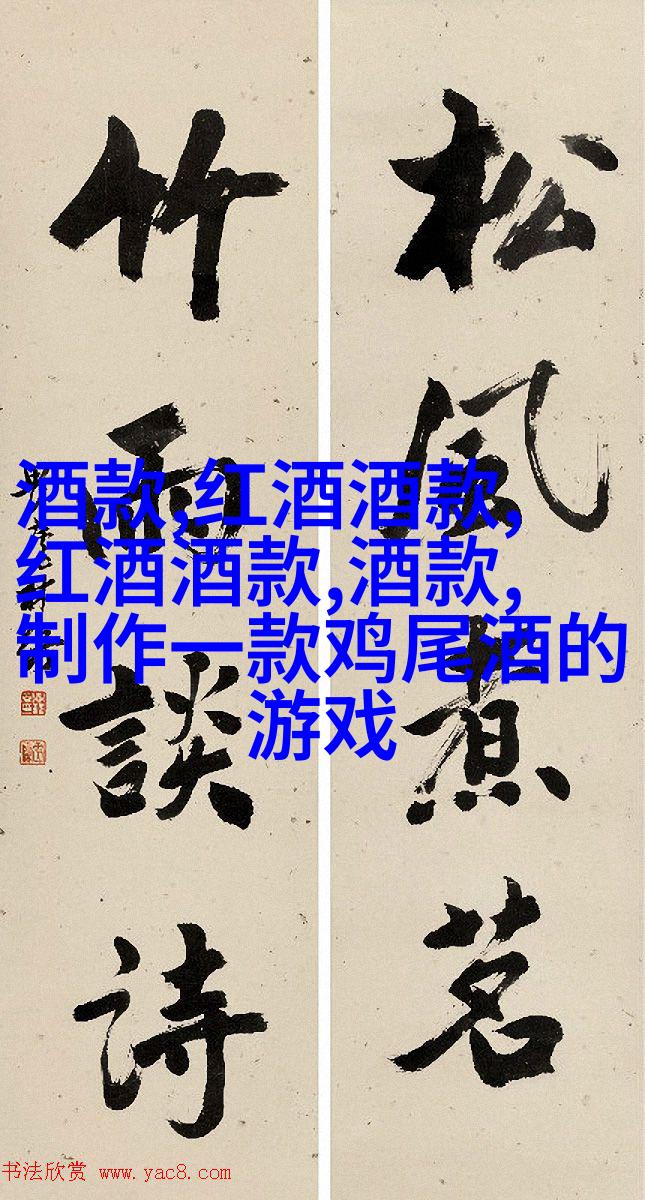 松風煮茗
竹雨談詩
酒款,红酒酒款,
红酒酒款,酒款,
制作一款鸡尾酒的
游戏
书法欣赏 www.yac8.com